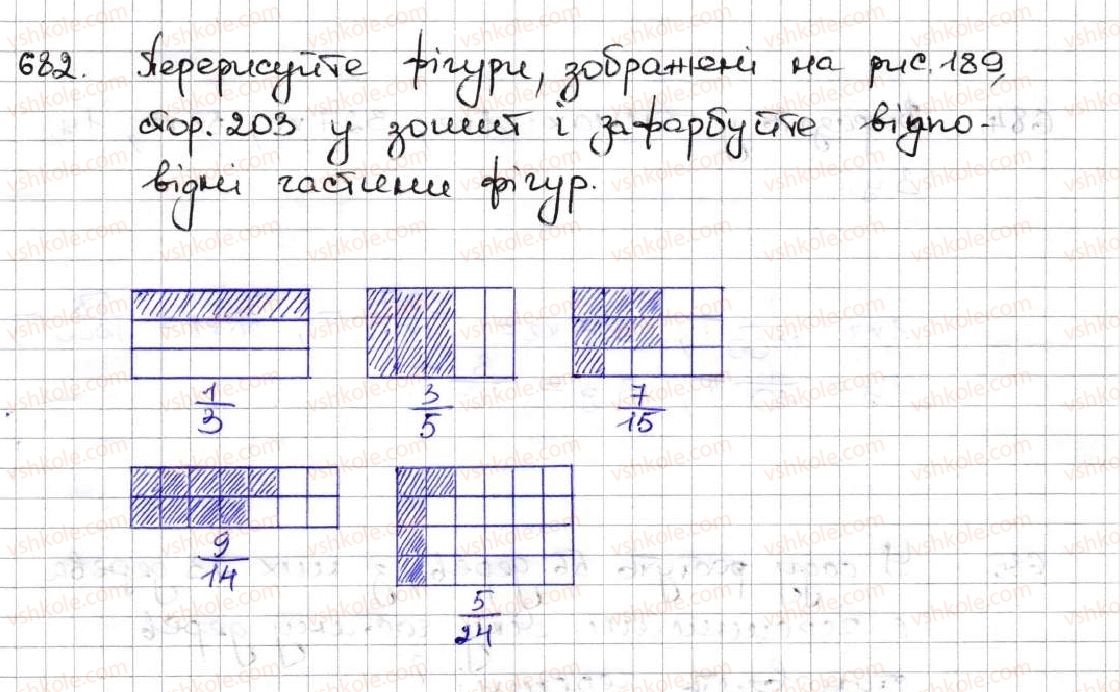 682. Перерисуйте фігури, зображені на рис. 189,
стор. 203 у зошит і зафарбуйте відпо-
відні частини фігур.
1/3 3/5 7/15
9/14 5/24
vshkole.com